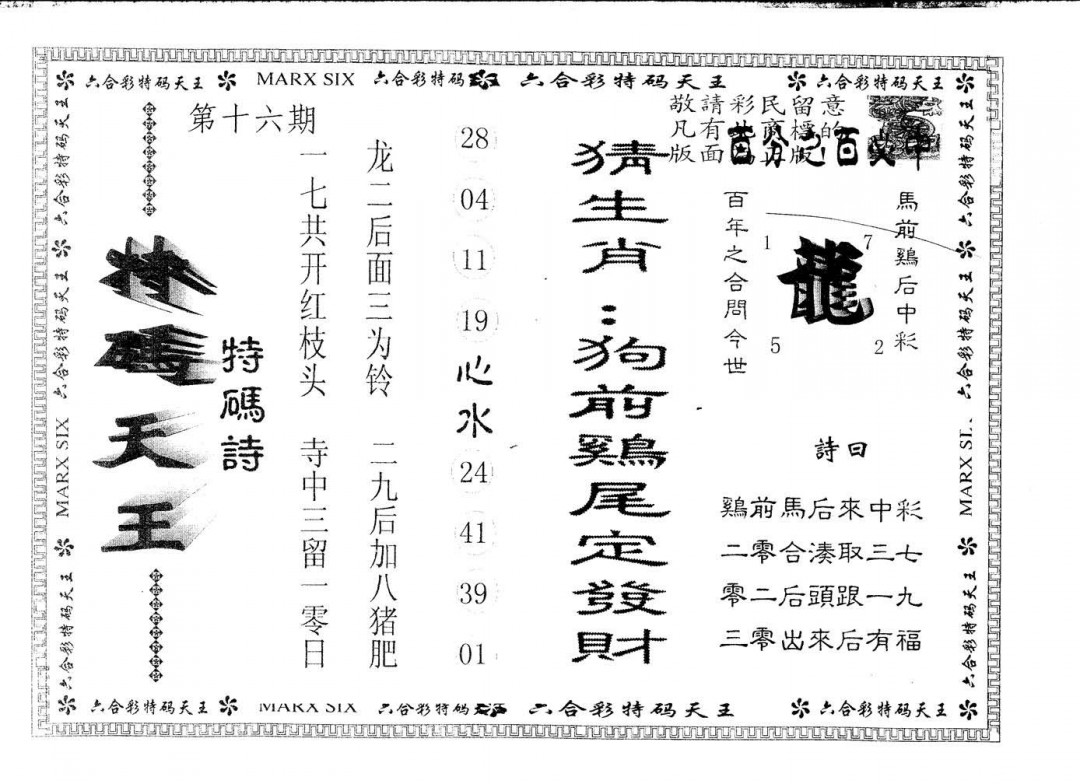 六合彩特码天王 MARX SIX 六合彩特码 六合彩特码天王 六合彩特码天王
第十六期
特碼天王
特碼詩
龙二后面三为铃 二九后加八猪肥
一七共开红枝头 寺中三留一零日
28
04
11
19
心水
24
41
39
01
猜生肖：狗前鷄尾定發財
敬請彩民留意
凡有
版面
版
百分之百
中
馬前鷄后中彩
百年之合問今世
1
7
龍
5
2
詩曰
鷄前馬后來中彩
二零合湊取三七
零二后頭跟一九
三零出來后有福
六合彩特码天王
六合彩特码天王
六合彩特码天王
MARX SIX
六合彩特码天王
六合彩特码天王
六合彩特码天王
六合彩特码天王
MARX SI
六合彩特码天王
六合彩特码天王 MARX SIX 六合彩特码 六合彩特码天王 六合彩特码天王